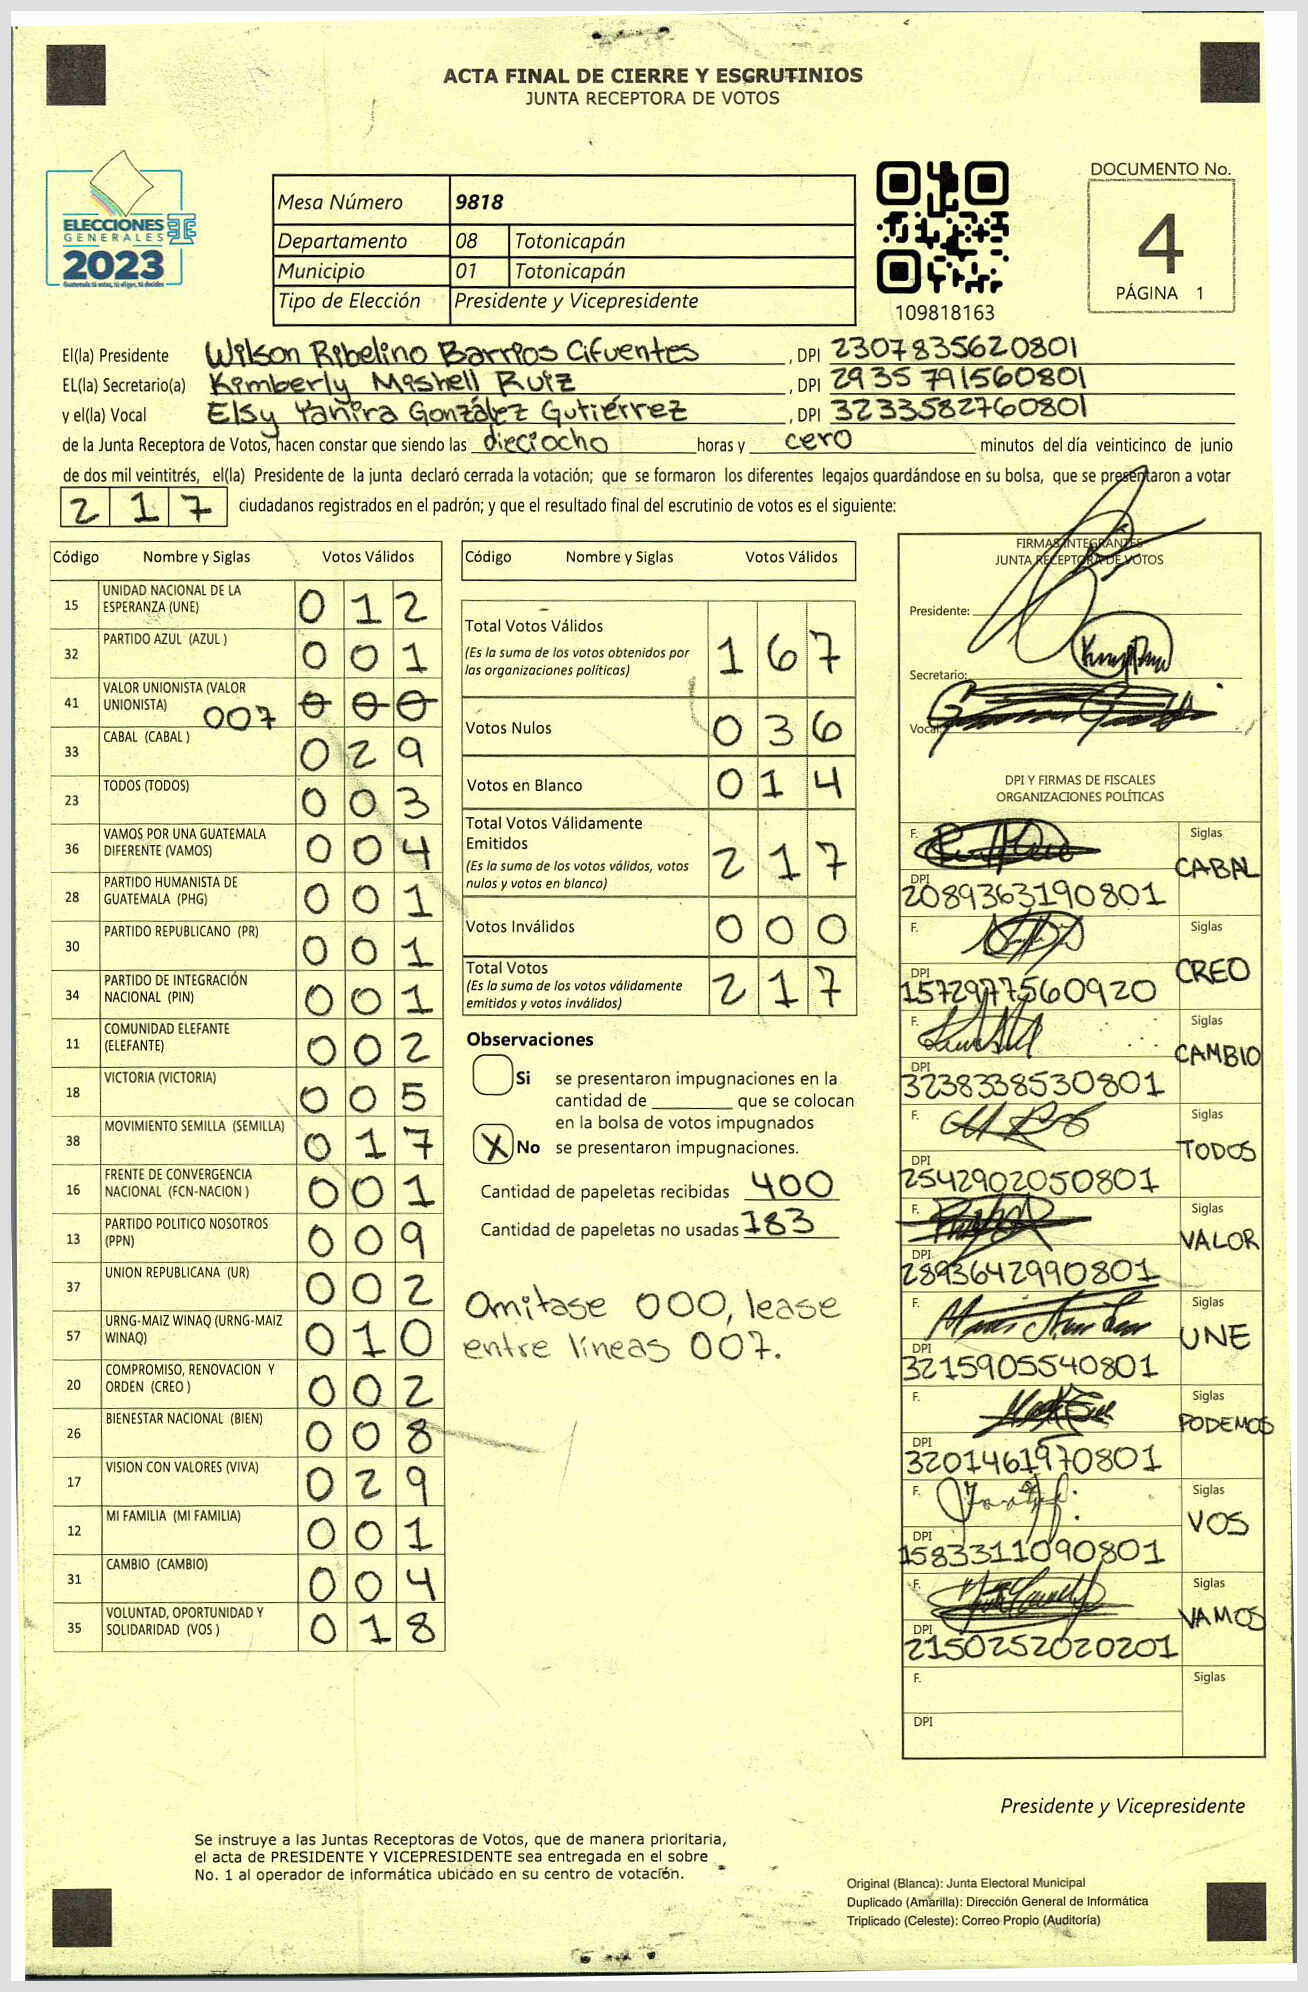 ACTA FINAL DE CIERRE Y ESCRUTINIOS
JUNTA RECEPTORA DE VOTOS
ELECCIONES
GENERALES
2023
Guatemala tú votas, tú eliges, tú decides
Mesa Número 9818
Departamento 08 Totonicapán
Municipio 01 Totonicapán
Tipo de Elección Presidente y Vicepresidente
109818163
DOCUMENTO No.
4
PÁGINA 1
El(la) Presidente Wilson Ribelino Barrios Cifuentes, DPI 2307835620801
EL(la) Secretario(a) Kimberly Mishell Ruiz, DPI 2935791560801
y el(la) Vocal Elsy Yanira González Gutiérrez, DPI 3233582760801
de la Junta Receptora de Votos, hacen constar que siendo las dieciocho horas y cero minutos del día veinticinco de junio
de dos mil veintitrés, el(la) Presidente de la junta declaró cerrada la votación; que se formaron los diferentes legajos guardándose en su bolsa, que se presentaron a votar
217 ciudadanos registrados en el padrón; y que el resultado final del escrutinio de votos es el siguiente:
Código Nombre y Siglas Votos Válidos
15 UNIDAD NACIONAL DE LA ESPERANZA (UNE) 012
32 PARTIDO AZUL (AZUL ) 001
41 VALOR UNIONISTA (VALOR UNIONISTA) 007 000
33 CABAL (CABAL ) 029
23 TODOS (TODOS) 003
36 VAMOS POR UNA GUATEMALA DIFERENTE (VAMOS) 004
28 PARTIDO HUMANISTA DE GUATEMALA (PHG) 001
30 PARTIDO REPUBLICANO (PR) 001
34 PARTIDO DE INTEGRACIÓN NACIONAL (PIN) 001
11 COMUNIDAD ELEFANTE (ELEFANTE) 002
18 VICTORIA (VICTORIA) 005
38 MOVIMIENTO SEMILLA (SEMILLA) 017
16 FRENTE DE CONVERGENCIA NACIONAL (FCN-NACION ) 001
13 PARTIDO POLITICO NOSOTROS (PPN) 009
37 UNION REPUBLICANA (UR) 002
57 URNG-MAIZ WINAQ (URNG-MAIZ WINAQ) 010
20 COMPROMISO, RENOVACION Y ORDEN (CREO ) 002
26 BIENESTAR NACIONAL (BIEN) 008
17 VISION CON VALORES (VIVA) 029
12 MI FAMILIA (MI FAMILIA) 001
31 CAMBIO (CAMBIO) 004
35 VOLUNTAD, OPORTUNIDAD Y SOLIDARIDAD (VOS ) 018
Código Nombre y Siglas Votos Válidos
Total Votos Válidos 167
(Es la suma de los votos obtenidos por
las organizaciones políticas)
Votos Nulos 036
Votos en Blanco 014
Total Votos Válidamente
Emitidos 217
(Es la suma de los votos válidos, votos
nulos y votos en blanco)
Votos Inválidos 000
Total Votos 217
(Es la suma de los votos válidamente
emitidos y votos inválidos)
Observaciones
Si se presentaron impugnaciones en la
cantidad de ________ que se colocan
en la bolsa de votos impugnados
X No se presentaron impugnaciones.
Cantidad de papeletas recibidas 400
Cantidad de papeletas no usadas 183
Omitase 000, lease
entre líneas 007.
FIRMAS INTEGRANTES
JUNTA RECEPTORA DE VOTOS
Presidente:
Secretario:
Vocal:
DPI Y FIRMAS DE FISCALES
ORGANIZACIONES POLÍTICAS
F. Siglas CABAL
DPI 2089363190801
F. Siglas CREO
DPI 1572977560920
F. Siglas CAMBIO
DPI 3238338530801
F. Siglas TODOS
DPI 2542902050801
F. Siglas VALOR
DPI 2893642990801
F. Siglas UNE
DPI 3215905540801
F. Siglas PODEMOS
DPI 3201461970801
F. Siglas VOS
DPI 1583311090801
F. Siglas VAMOS
DPI 2150252020201
F. Siglas
DPI
Presidente y Vicepresidente
Se instruye a las Juntas Receptoras de Votos, que de manera prioritaria,
el acta de PRESIDENTE Y VICEPRESIDENTE sea entregada en el sobre
No. 1 al operador de informática ubicado en su centro de votación.
Original (Blanca): Junta Electoral Municipal
Duplicado (Amarilla): Dirección General de Informática
Triplicado (Celeste): Correo Propio (Auditoría)